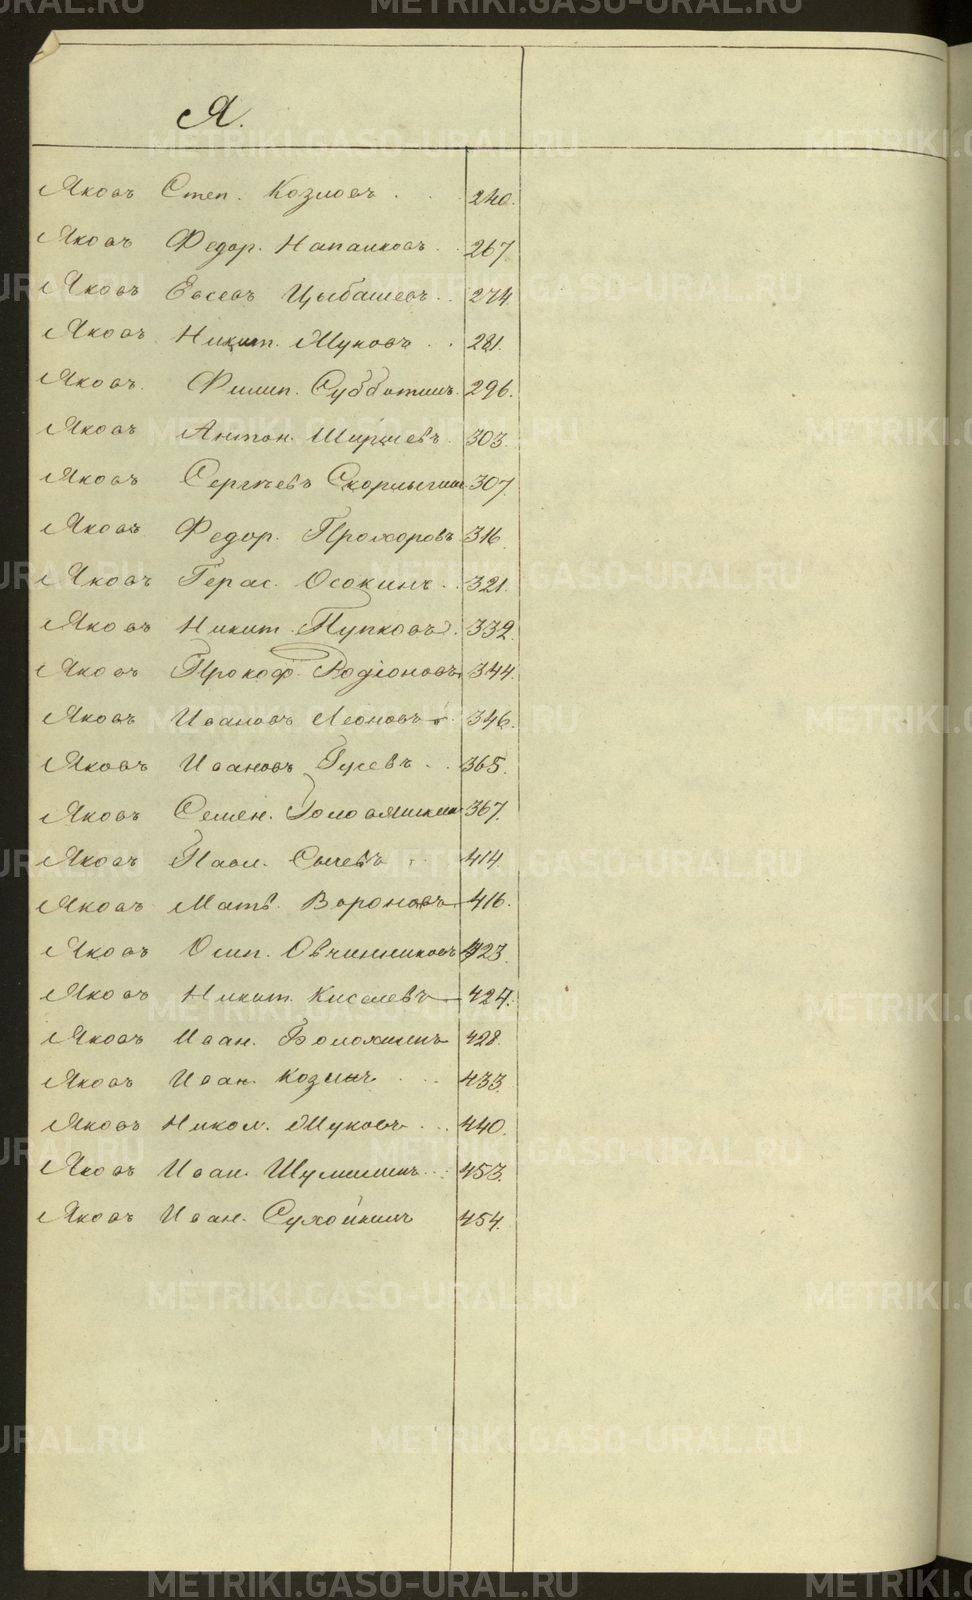 Я.
Яковъ Степ. Козловъ . . 240.
Яковъ Федор. Напалковъ . . 267.
Яковъ Евсевъ Цыбашевъ . . 274.
Яковъ Никит. Жуковъ . . 281.
Яковъ Филип. Субботинъ . 296.
Яковъ Антон. Ширяевъ . 303.
Яковъ Сергѣевъ 307.
Яковъ Федор. Прохоровъ 316.
Яковъ Герас. Осокинъ . . 321.
Яковъ Никит. Пупковъ . 332.
Яковъ Прокоф. Родіоновъ 344.
Яковъ Ивановъ Леоновъ 346.
Яковъ Ивановъ Гусевъ . . 365.
Яковъ Семен. 367.
Яковъ Павл. Сычевъ . . 414.
Яковъ Матв. Вороновъ 416.
Яковъ Осип. Овчинниковъ 423.
Яковъ Никит. Киселевъ 427.
Яковъ Иван. Волохинъ 428.
Яковъ Иван. Козинъ . . . 433.
Яковъ Никол. Жуковъ . . . 440.
Яковъ Иван. Шумилинъ . . 453.
Яковъ Иван. Сухойкинъ 454.
METRIKI.GASO-URAL.RU